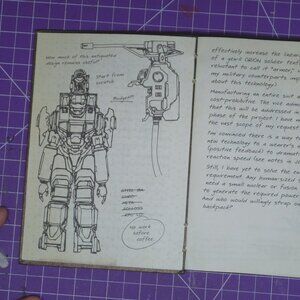 How much of this antiquated
design remains useful?
Start from
scratch
"Budget"
No work
before
coffee.
effectively increase the
of a genII ORION soldier
reluctant to call it "armor,"
my military counterparts
about this technology).
Manufacturing an entire suit
cost-prohibitive. The vice
that this will be addressed
phase of the project. I have
the vast scope of my
I'm convinced there is a way to
new technology to a wearer's
(positive feedback) to
reaction speed (see notes in
Still, I have yet to solve the
requirement. Any human-sized
need a small nuclear or
to generate the required power.
And who would willingly strap
backpack?